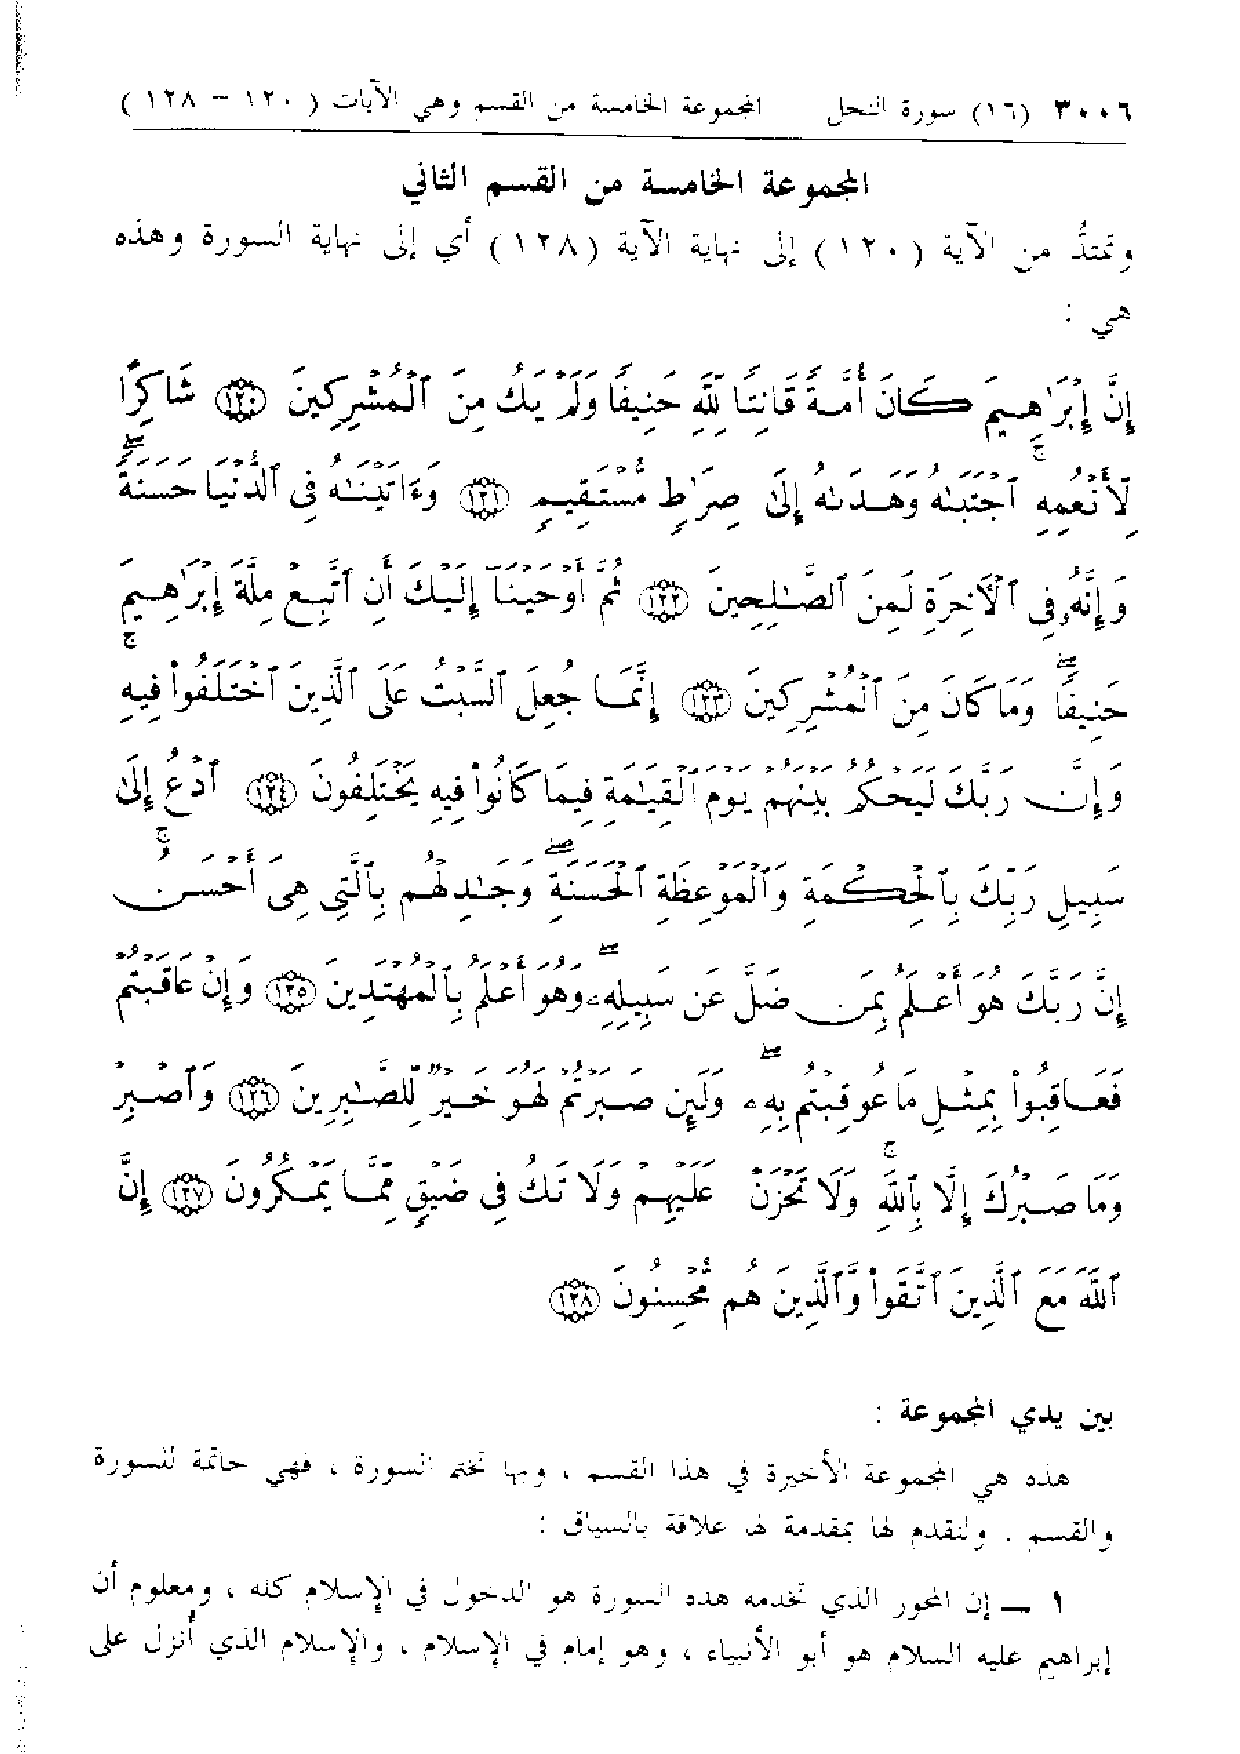 ٣٠٠٦ (١٦) سورة النحل المجموعة الخامسة من القسم وهي الآيات ( ١٢٠ – ١٢٨ )
المجموعة الخامسة من القسم الثاني
وتمتدُّ من الآية ( ١٢٠ ) إلى نهاية الآية (١٢٨ ) أي إلى نهاية السورة وهذه
هي :
إِنَّ إِبْرَٰهِيمَ كَانَ أُمَّةً قَانِتًا لِّلَّهِ حَنِيفًا وَلَمْ يَكُ مِنَ ٱلْمُشْرِكِينَ ﴿١٢٠﴾ شَاكِرًا
لِّأَنْعُمِهِ ۚ ٱجْتَبَىٰهُ وَهَدَىٰهُ إِلَىٰ صِرَٰطٍ مُّسْتَقِيمٍ ﴿١٢١﴾ وَءَاتَيْنَٰهُ فِى ٱلدُّنْيَا حَسَنَةً ۖ
وَإِنَّهُۥ فِى ٱلْأَخِرَةِ لَمِنَ ٱلصَّٰلِحِينَ ﴿١٢٢﴾ ثُمَّ أَوْحَيْنَآ إِلَيْكَ أَنِ ٱتَّبِعْ مِلَّةَ إِبْرَٰهِيمَ
حَنِيفًا ۖ وَمَا كَانَ مِنَ ٱلْمُشْرِكِينَ ﴿١٢٣﴾ إِنَّمَا جُعِلَ ٱلسَّبْتُ عَلَى ٱلَّذِينَ ٱخْتَلَفُوا۟ فِيهِ ۚ
وَإِنَّ رَبَّكَ لَيَحْكُمُ بَيْنَهُمْ يَوْمَ ٱلْقِيَٰمَةِ فِيمَا كَانُوا۟ فِيهِ يَخْتَلِفُونَ ﴿١٢٤﴾ ٱدْعُ إِلَىٰ
سَبِيلِ رَبِّكَ بِٱلْحِكْمَةِ وَٱلْمَوْعِظَةِ ٱلْحَسَنَةِ ۖ وَجَٰدِلْهُم بِٱلَّتِى هِىَ أَحْسَنُ ۚ
إِنَّ رَبَّكَ هُوَ أَعْلَمُ بِمَن ضَلَّ عَن سَبِيلِهِۦ ۖ وَهُوَ أَعْلَمُ بِٱلْمُهْتَدِينَ ﴿١٢٥﴾ وَإِنْ عَاقَبْتُمْ
فَعَاقِبُوا۟ بِمِثْلِ مَا عُوقِبْتُم بِهِۦ ۖ وَلَئِن صَبَرْتُمْ لَهُوَ خَيْرٌ لِّلصَّٰبِرِينَ ﴿١٢٦﴾ وَٱصْبِرْ
وَمَا صَبْرُكَ إِلَّا بِٱللَّهِ ۚ وَلَا تَحْزَنْ عَلَيْهِمْ وَلَا تَكُ فِى ضَيْقٍ مِّمَّا يَمْكُرُونَ ﴿١٢٧﴾ إِنَّ
ٱللَّهَ مَعَ ٱلَّذِينَ ٱتَّقَوا۟ وَّٱلَّذِينَ هُم مُّحْسِنُونَ ﴿١٢٨﴾
بين يدي المجموعة :
هذه هي المجموعة الأخيرة في هذا القسم ، وبها تختم السورة ، فهي خاتمة للسورة
والقسم . ولنقدم لها بمقدمة لها علاقة بالسياق :
١ ــ إن المحور الذي تخدمه هذه السورة هو الدخول في الإسلام كله ، ومعلوم أن
إبراهيم عليه السلام هو أبو الأنبياء ، وهو إمام في الإسلام ، والإسلام الذي أنزل على